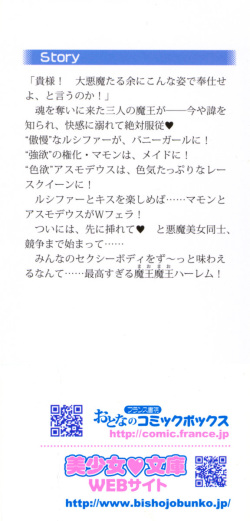 Story
「貴様！　大悪魔たる余にこんな姿で奉仕せ
よ、と言うのか！」
　魂を奪いに来た三人の魔王が――今や諱を
知られ、快感に溺れて絶対服従♥
“傲慢”なルシファーが、バニーガールに！
“強欲”の権化・マモンは、メイドに！
“色欲”アスモデウスは、色気たっぷりなレー
スクイーンに！
　ルシファーとキスを楽しめば……マモンと
アスモデウスがWフェラ！
　ついには、先に挿れて♥　と悪魔美女同士、
競争まで始まって……
　みんなのセクシーボディをず〜っと味わえ
るなんて……最高すぎる魔王魔王ハーレム！
フランス書院
おとなのコミックボックス
http://comic.france.jp
美少女♥文庫
WEBサイト
http://www.bishojobunko.jp/